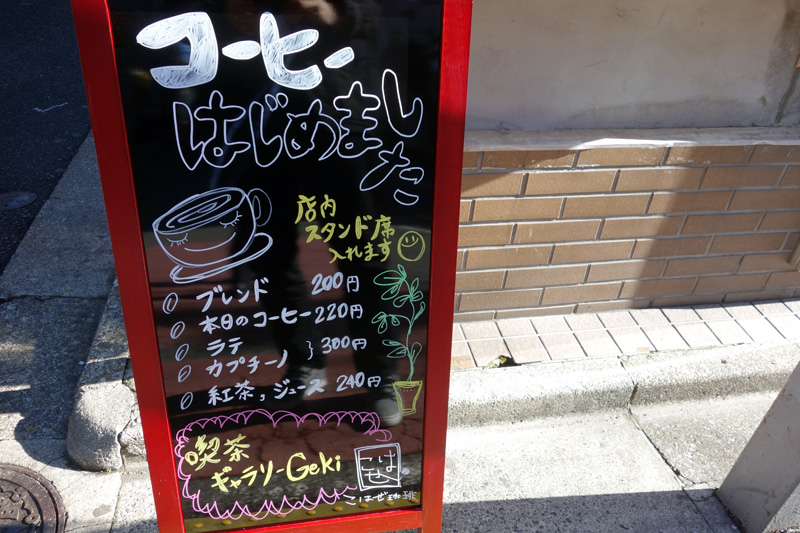 コーヒー
はじめました
店内
スタンド席
入れます
ブレンド 200円
本日のコーヒー 220円
ラテ
カプチーノ } 300円
紅茶,ジュース 240円
喫茶
ギャラリーGeki
こはぜ珈琲